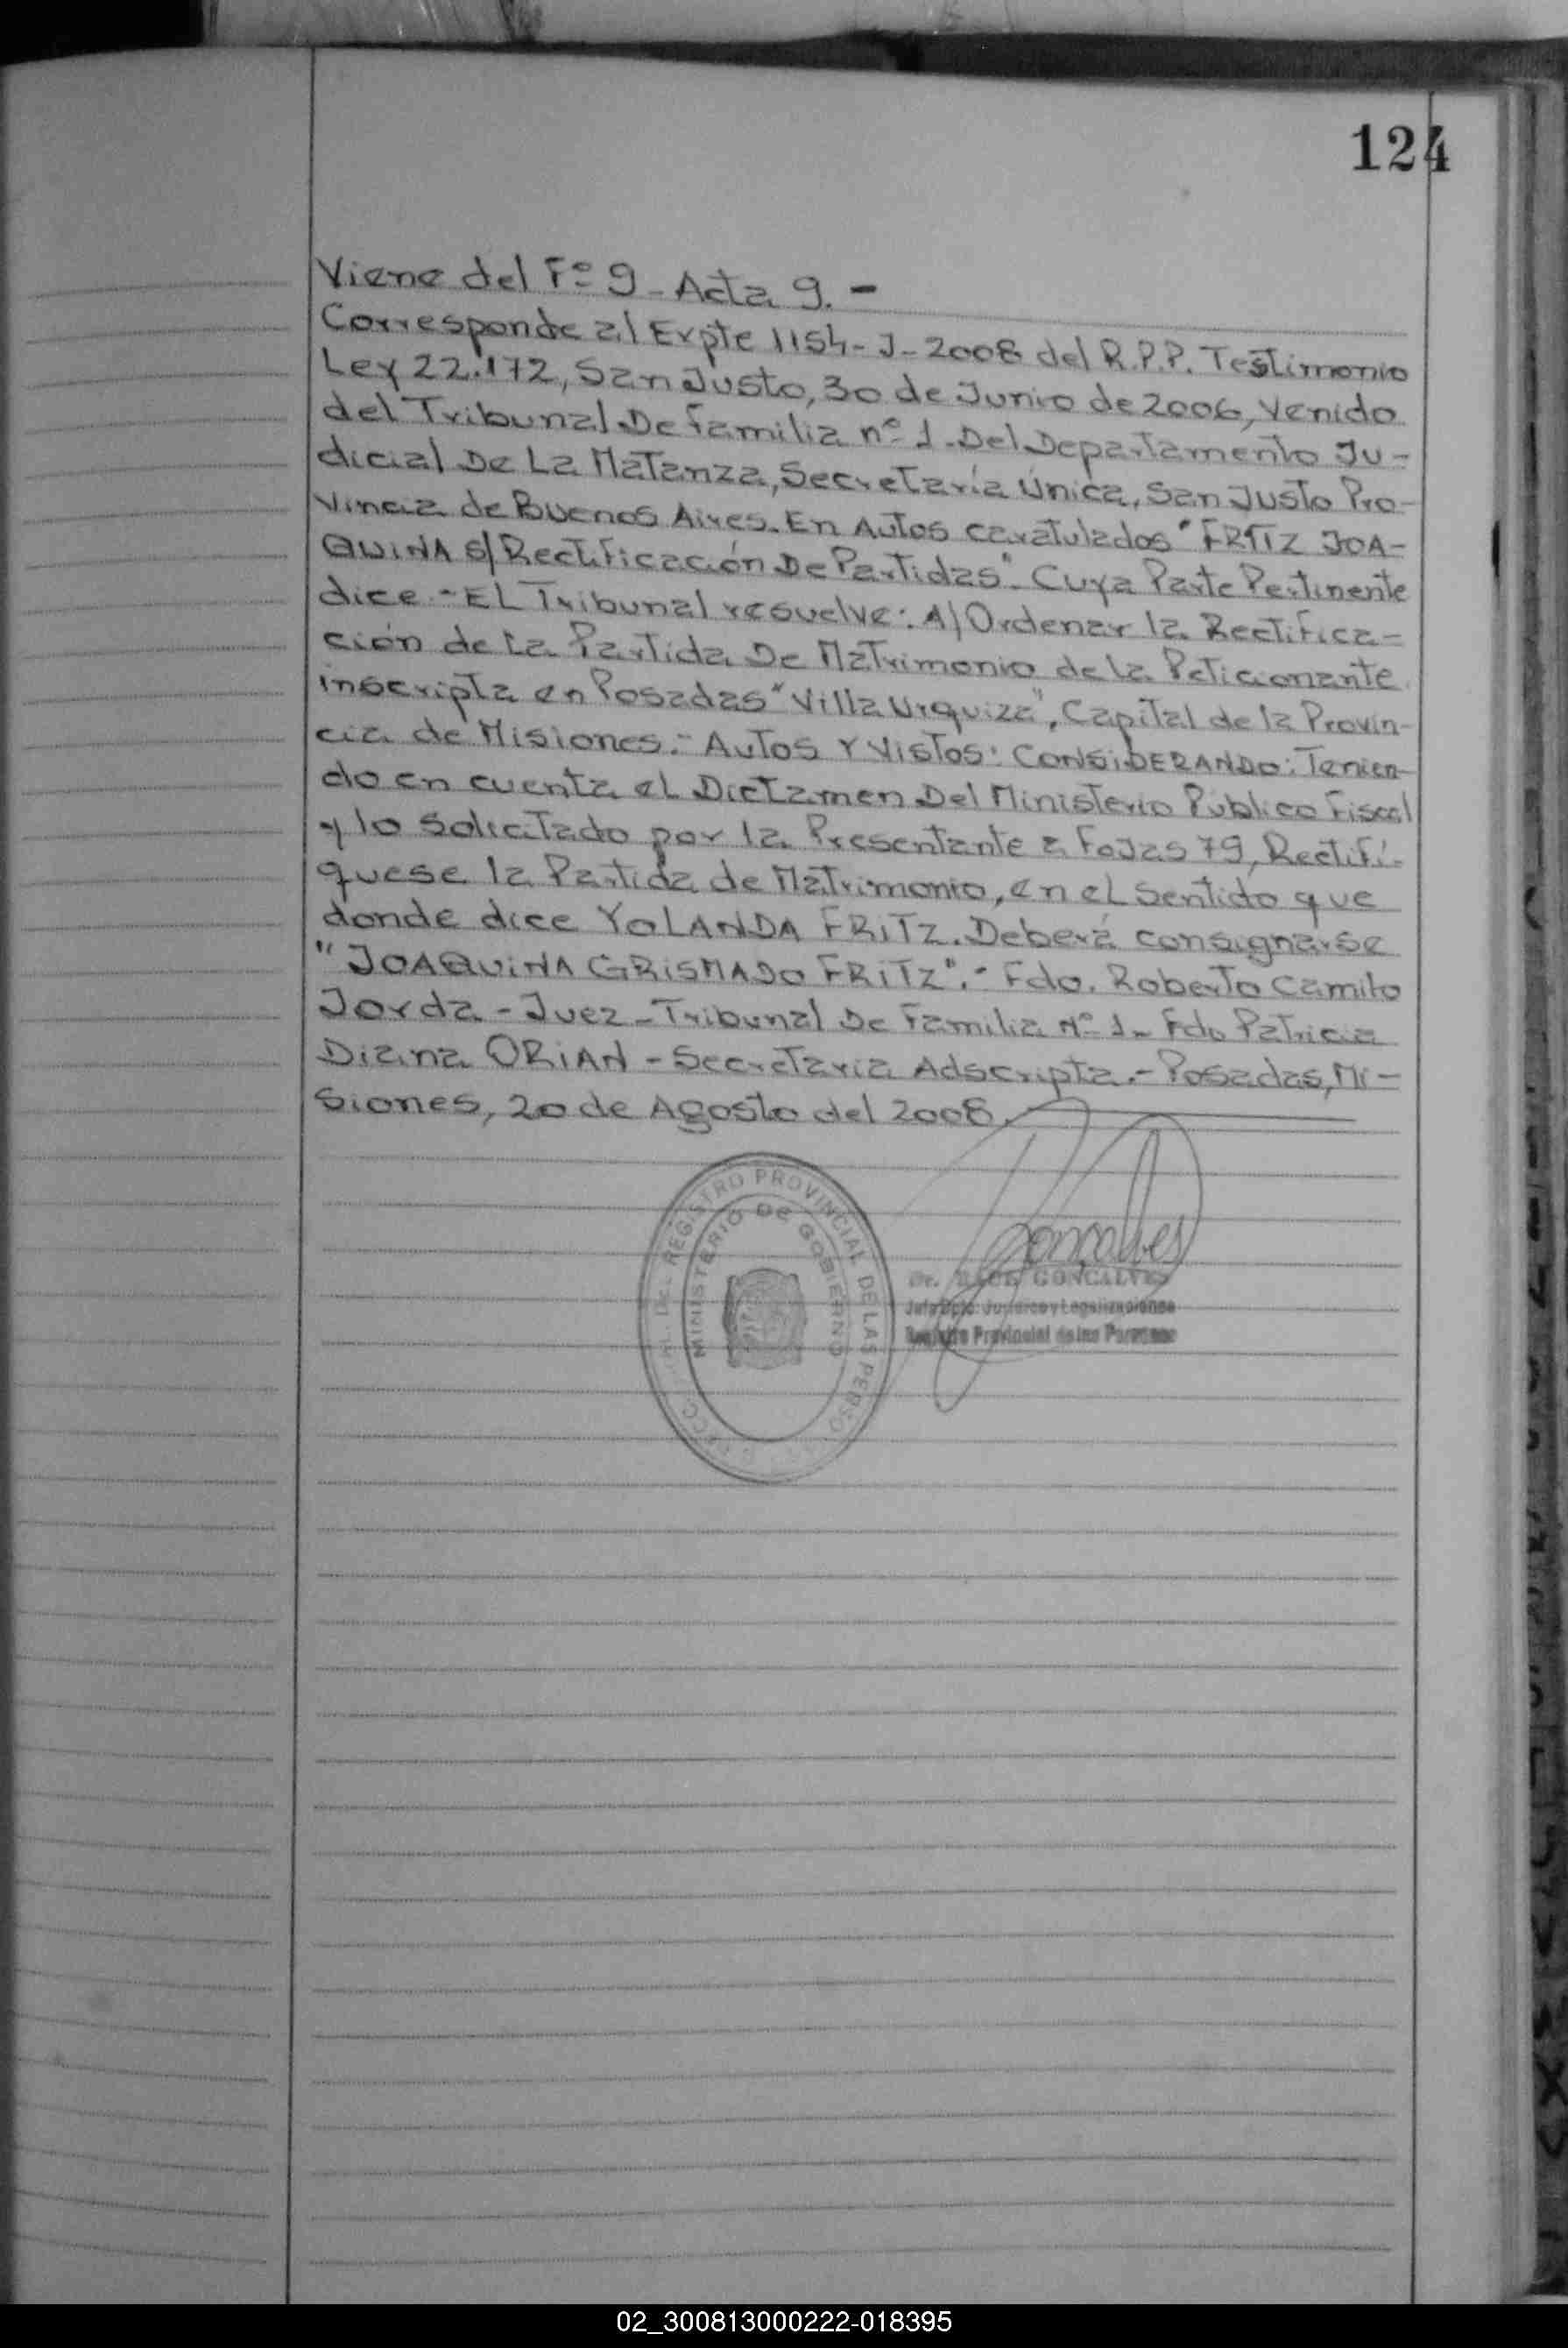 124
Viene del Fº 9 - Acta 9. -
Corresponde al Expte 1154-J-2008 del R.P.P. Testimonio
Ley 22.172, San Justo, 30 de Junio de 2006, Venido
del Tribunal De Familia nº 1. Del Departamento Ju-
dicial De La Matanza, Secretaría Única, San Justo Pro-
vincia de Buenos Aires. En Autos caratulados "FRTIZ JOA-
QUINA S/ Rectificación De Partidas". Cuya Parte Pertinente
dice - EL Tribunal resuelve: A/ Ordenar la Rectifica-
ción de La Partida De Matrimonio de la Peticionante
inscripta en Posadas "Villa Urquiza", Capital de la Provin-
cia de Misiones.- Autos Y Vistos: CONSIDERANDO: Tenien-
do en cuenta el Dictamen Del Ministerio Público Fiscal
y lo solicitado por la Presentante a Fojas 79, Rectifí-
quese la Partida de Matrimonio, en el Sentido que
donde dice YOLANDA FRITZ. Deberá consignarse
"JOAQUINA GRISMADO FRITZ".- Fdo. Roberto Camilo
Jorda - Juez - Tribunal De Familia Nº 1 - Fdo Patricia
Diana ORIAN - Secretaria Adscripta.- Posadas, Mi-
siones, 20 de Agosto del 2008.
REGISTRO PROVINCIAL DE LAS PERSO
MINISTERIO DE GOBIERNO
Goncalves
Dr. RAUL GONCALVES
Jefe Dpto. Jurídico y Legalizaciones
Registro Provincial de las Personas
02_300813000222-018395